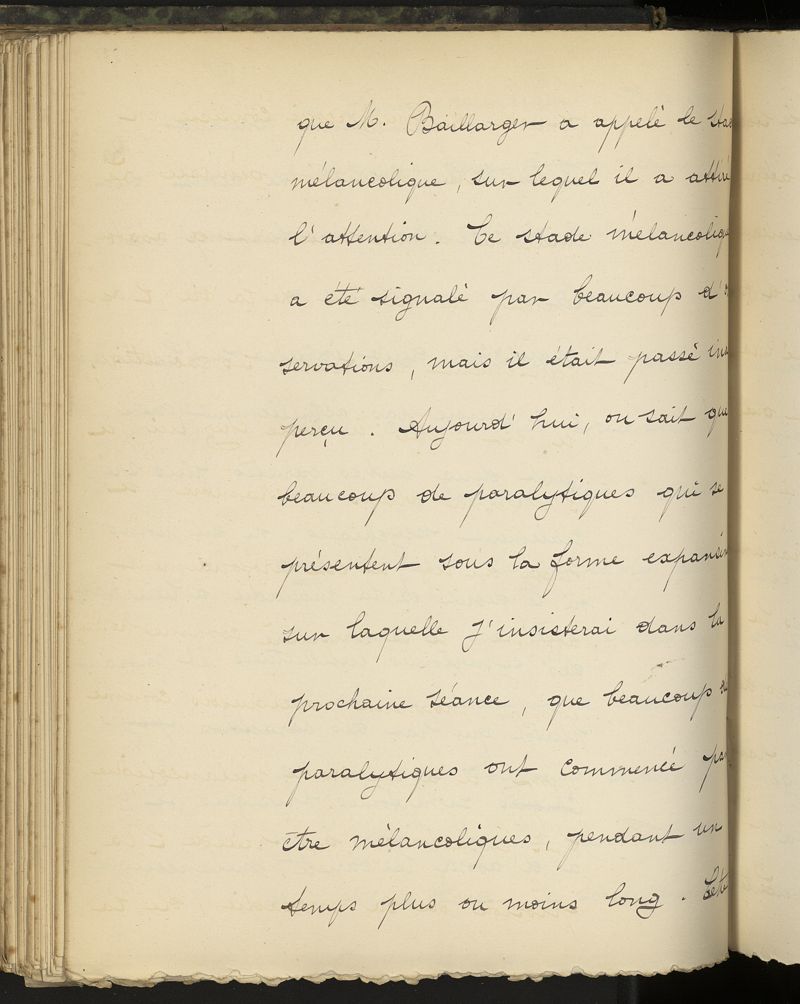 que M. Baillarger a appelé le sta
mélancolique, sur lequel il a attiré
l'attention. Ce stade mélancoliq
a été signalé par beaucoup d'o
servations, mais il était passé ina
perçu. Aujourd'hui, on sait que
beaucoup de paralytiques qui se
présentent sous la forme expansi
sur laquelle j'insisterai dans la
prochaine séance, que beaucoup
paralytiques ont commencé par
être mélancoliques, pendant un
temps plus ou moins long.